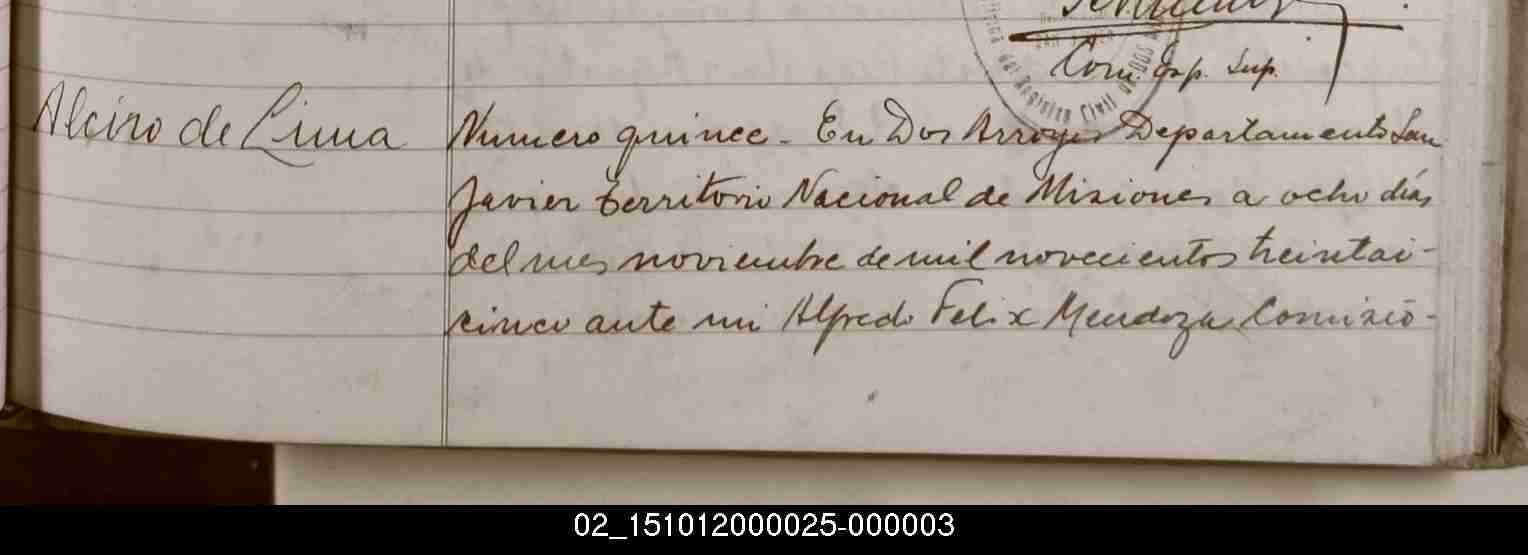 Com. Esp. Sup.
Alciro de Lima
Numero quince - En Dos Arroyos Departamento San
Javier Territorio Nacional de Misiones a ocho días
del mes noviembre de mil novecientos treintai-
cinco ante mi Alfredo Felix Mendoza Comisio-
02_151012000025-000003